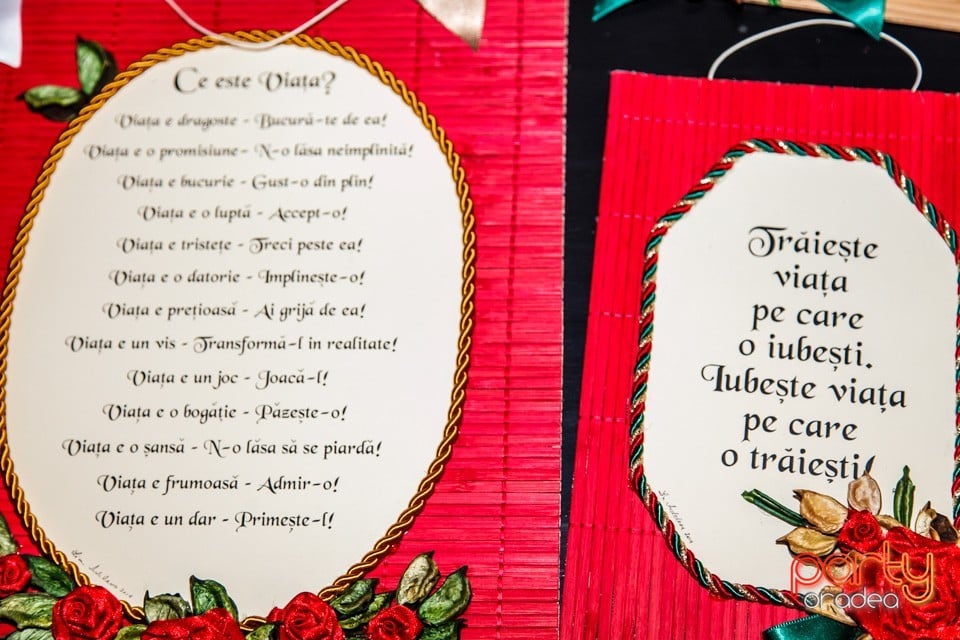 Ce este Viața?
Viața e dragoste - Bucură-te de ea!
Viața e o promisiune- N-o lăsa neimplinită!
Viața e bucurie - Gust-o din plin!
Viața e o luptă - Accept-o!
Viața e tristețe - Treci peste ea!
Viața e o datorie - Implinește-o!
Viața e prețioasă - Ai grijă de ea!
Viața e un vis - Transformă-l in realitate!
Viața e un joc - Joacă-l!
Viața e o bogăție - Păzește-o!
Viața e o șansă - N-o lăsa să se piardă!
Viața e frumoasă - Admir-o!
Viața e un dar - Primește-l!
Trăiește
viața
pe care
o iubești.
Iubește viața
pe care
o trăiești!
party
oradea